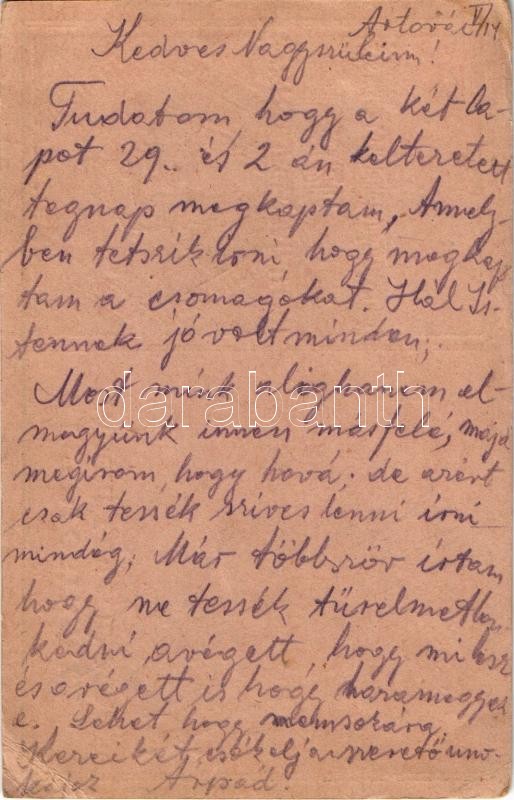 V/14
Kedves Nagyszüleim!
Tudatom hogy a két la-
pot 29. és 2 án keltezetett
tegnap megkaptam, Amely-
ben tetszik irni hogy megkap
tam a csomagokat. Hál Is-
tennek jó volt minden,.
Most mink alighanem el-
megyünk innen másfelé, majd
megirom, hogy hová. de azért
csak tessék szives lenni írni
mindég, Már többször írtam
hogy ne tessék türelmetlen
kedni avégett, hogy mi lesz
és avégett is hogy haza megyek
e. Lehet hogy nemsokára
csókolja szerető uno-
Árpád.
darabanth